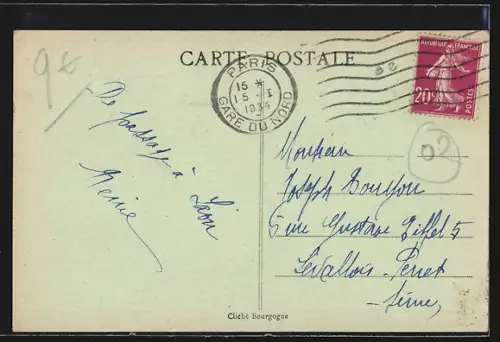 CARTE POSTALE
9 E
PARIS
15 *
15 - I
1934
GARE DU NORD
RÉPUBLIQUE FRANÇAISE
20c
POSTES
02
De passage à Laon
Reine
Monsieur
Joseph Bouyou
5 rue Gustave Eiffel 5
Levallois-Perret
Seine
Cliché Bourgogne